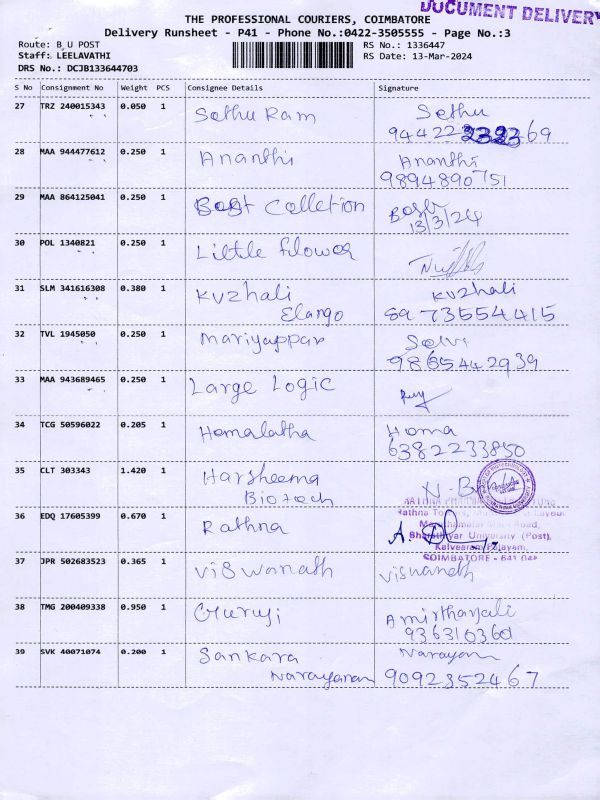 DOCUMENT DELIVERY
THE PROFESSIONAL COURIERS, COIMBATORE
Delivery Runsheet - P41 - Phone No.:0422-3505555 - Page No.:3
Route: B U POST
RS No.: 1336447
Staff: LEELAVATHI
RS Date: 13-Mar-2024
DRS No.: DCJB133644703
S No Consignment No Weight PCS Consignee Details Signature
27 TRZ 240015343 0.050 1 Sethu Ram Sethu
94422 69
28 MAA 944477612 0.250 1 Ananthi Ananthi
9894890751
29 MAA 864125041 0.250 1 Colletion
13/3/24
30 POL 1340821 0.250 1 Little flower
31 SLM 341616308 0.380 1 Kuzhali Kuzhali
Elango 8973554415
32 TVL 1945050 0.250 1 Mariyappan Selvi
9865442939
33 MAA 943689465 0.250 1 Large Logic
34 TCG 50596022 0.205 1 Hemalatha Hema
6382233850
35 CLT 303343 1.420 1 Harsheema
Biotech
36 EDQ 17605399 0.670 1 Rathna
Bharathiyar University (Post),
Kalveeram Palayam,
COIMBATORE - 641 046
37 JPR 502683523 0.365 1 Viswanath Viswanath
38 TMG 200409338 0.950 1 Guruji Amirthavali
936310360
39 SVK 40071074 0.200 1 Sankara Narayan
Narayanan 9092352467